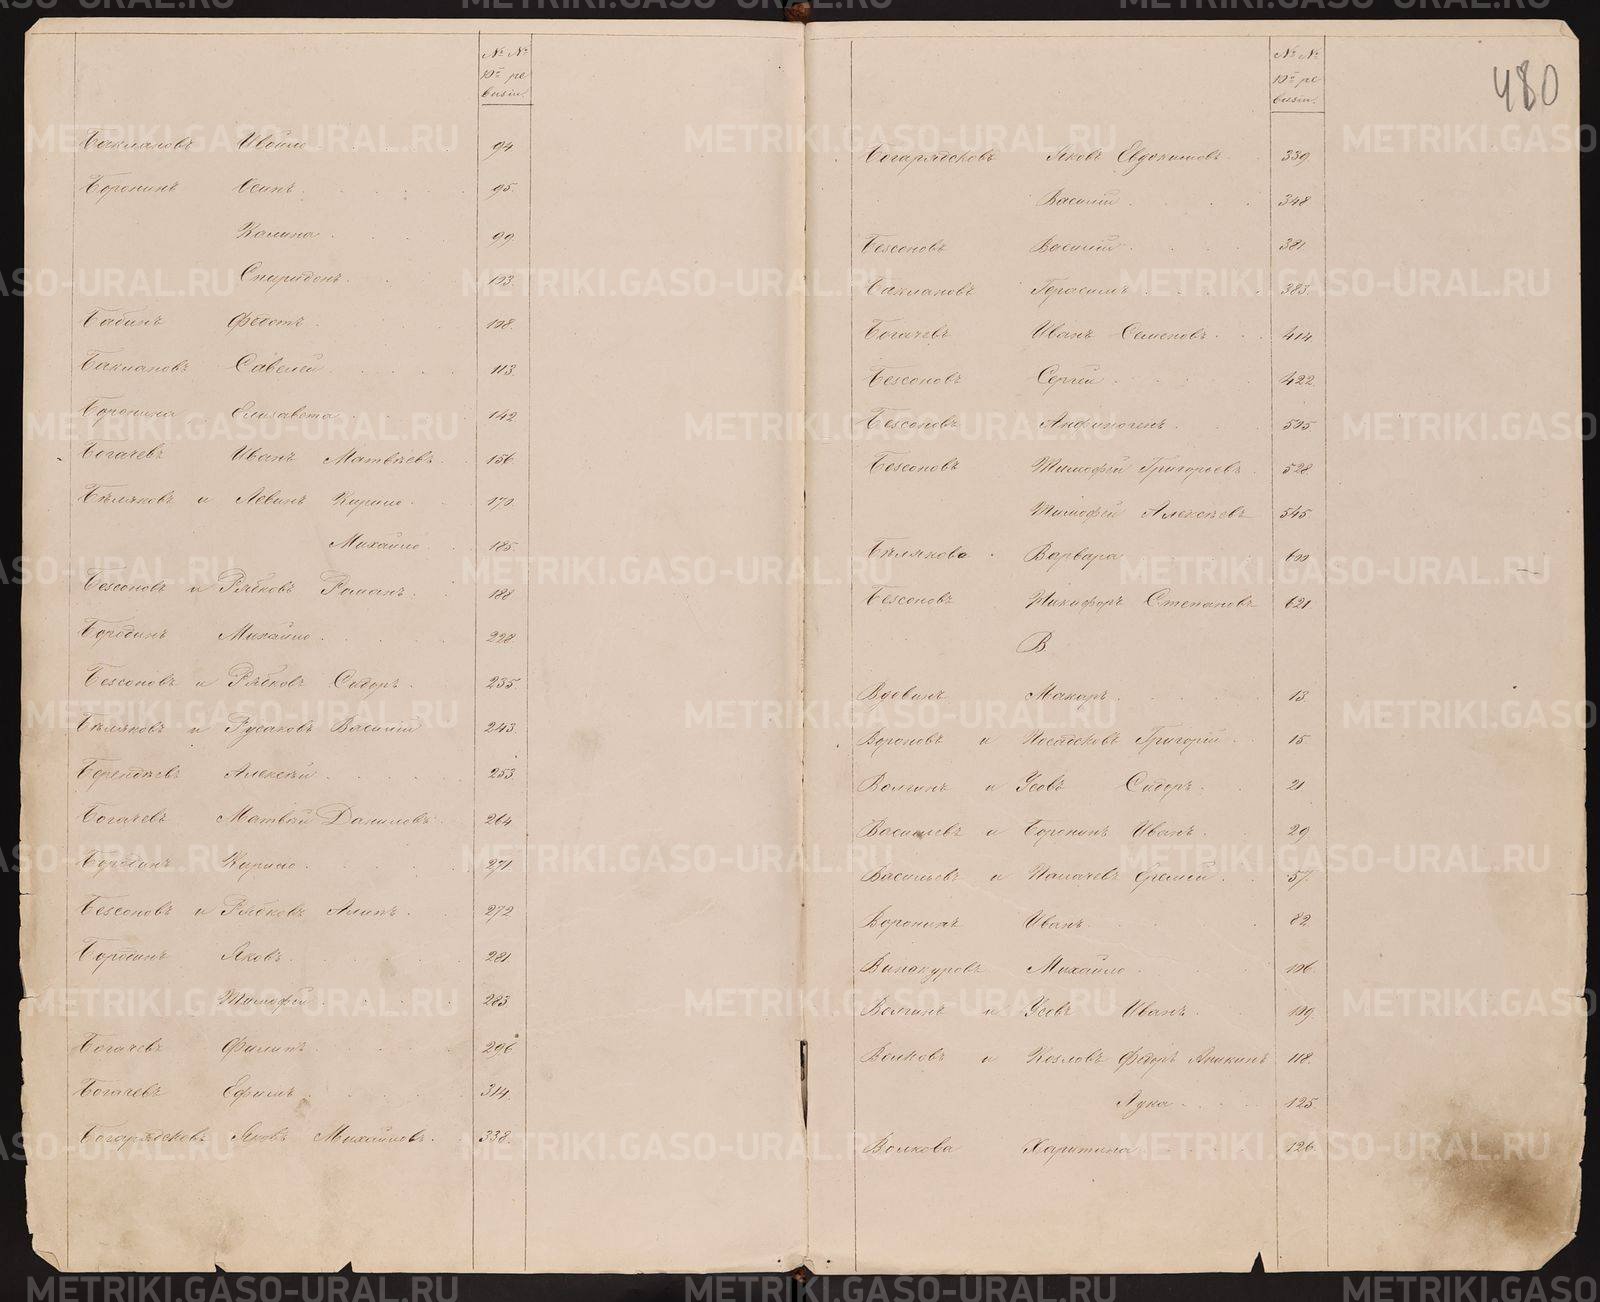 № №
10й ре
визіи.
Баклановъ Ивойло 94.
Боронинъ Осипъ 95.
Калина 99
Спиридонъ 103.
Бабинъ Федотъ 108.
Баклановъ Савелей 113.
Боронина Елизавета 142
Богачевъ Иванъ Матвѣевъ 156.
Бѣляковъ и Левинъ Кирило 170.
Михайло 185.
Безсоновъ и Рябковъ Романъ 188
Бородинъ Михайло 228
Безсоновъ и Рябковъ Сидоръ 235.
Бѣляковъ и Русаковъ Василій 243.
Берендѣевъ Алексѣй 253
Богачевъ Матвѣй Даниловъ 264
Бородинъ Кирило 271.
Безсоновъ и Рябковъ Алипъ 272
Бородинъ Яковъ 281.
Тимофей 283
Богачевъ Филипъ 296
Богачевъ Ефимъ 314.
Богарядсковъ Яковъ Михайловъ 338.
480
№ №
10й ре
визіи.
Богарядсковъ Яковъ Евдокимовъ 339
Василій 348
Безсоновъ Василій 381
Баклановъ Герасимъ 383.
Богачевъ Иванъ Семеновъ 414.
Безсоновъ Сергей 422
Безсоновъ Анфиногенъ 505.
Безсоновъ Тимофей Григорьевъ 528.
Тимофей Алексѣевъ 545
Бѣлякова Варвара 600
Безсоновъ Никифоръ Степановъ 621
В.
Вдовинъ Макаръ 13.
Вороновъ и Посадсковъ Григорій 15
Волгинъ и Усовъ Сидоръ 21
Васильевъ и Боронинъ Иванъ 29
Васильевъ и Палачевъ Еремей 57.
Воронинъ Иванъ 82
Винокуровъ Михайло 106.
Волгинъ и Усовъ Иванъ 109.
Волковъ и Козловъ Федоръ Аникинъ 118.
Лука 125.
Волкова Харитина 126.